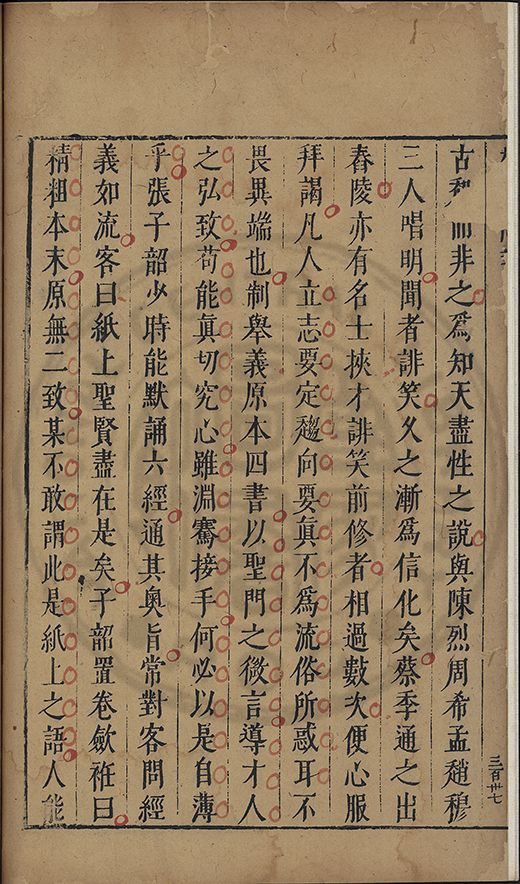 古 而非之爲知天盡性之說與陳烈周希孟趙穆
三人唱明聞者誹笑久之漸爲信化矣蔡季通之出
舂陵亦有名士挾才誹笑前修者相過數次便心服
拜謁凡人立志要定趨向要眞不爲流俗所惑耳不
畏異端也制舉義原本四書以聖門之微言導才人
之弘致苟能眞切究心雖淵騫接手何必以是自薄
乎張子韶少時能默誦六經通其奥旨常對客問經
義如流客曰紙上聖賢盡在是矣子韶置卷歛袵曰
精粗本末原無二致某不敢謂此是紙上之語人能
三百卅七